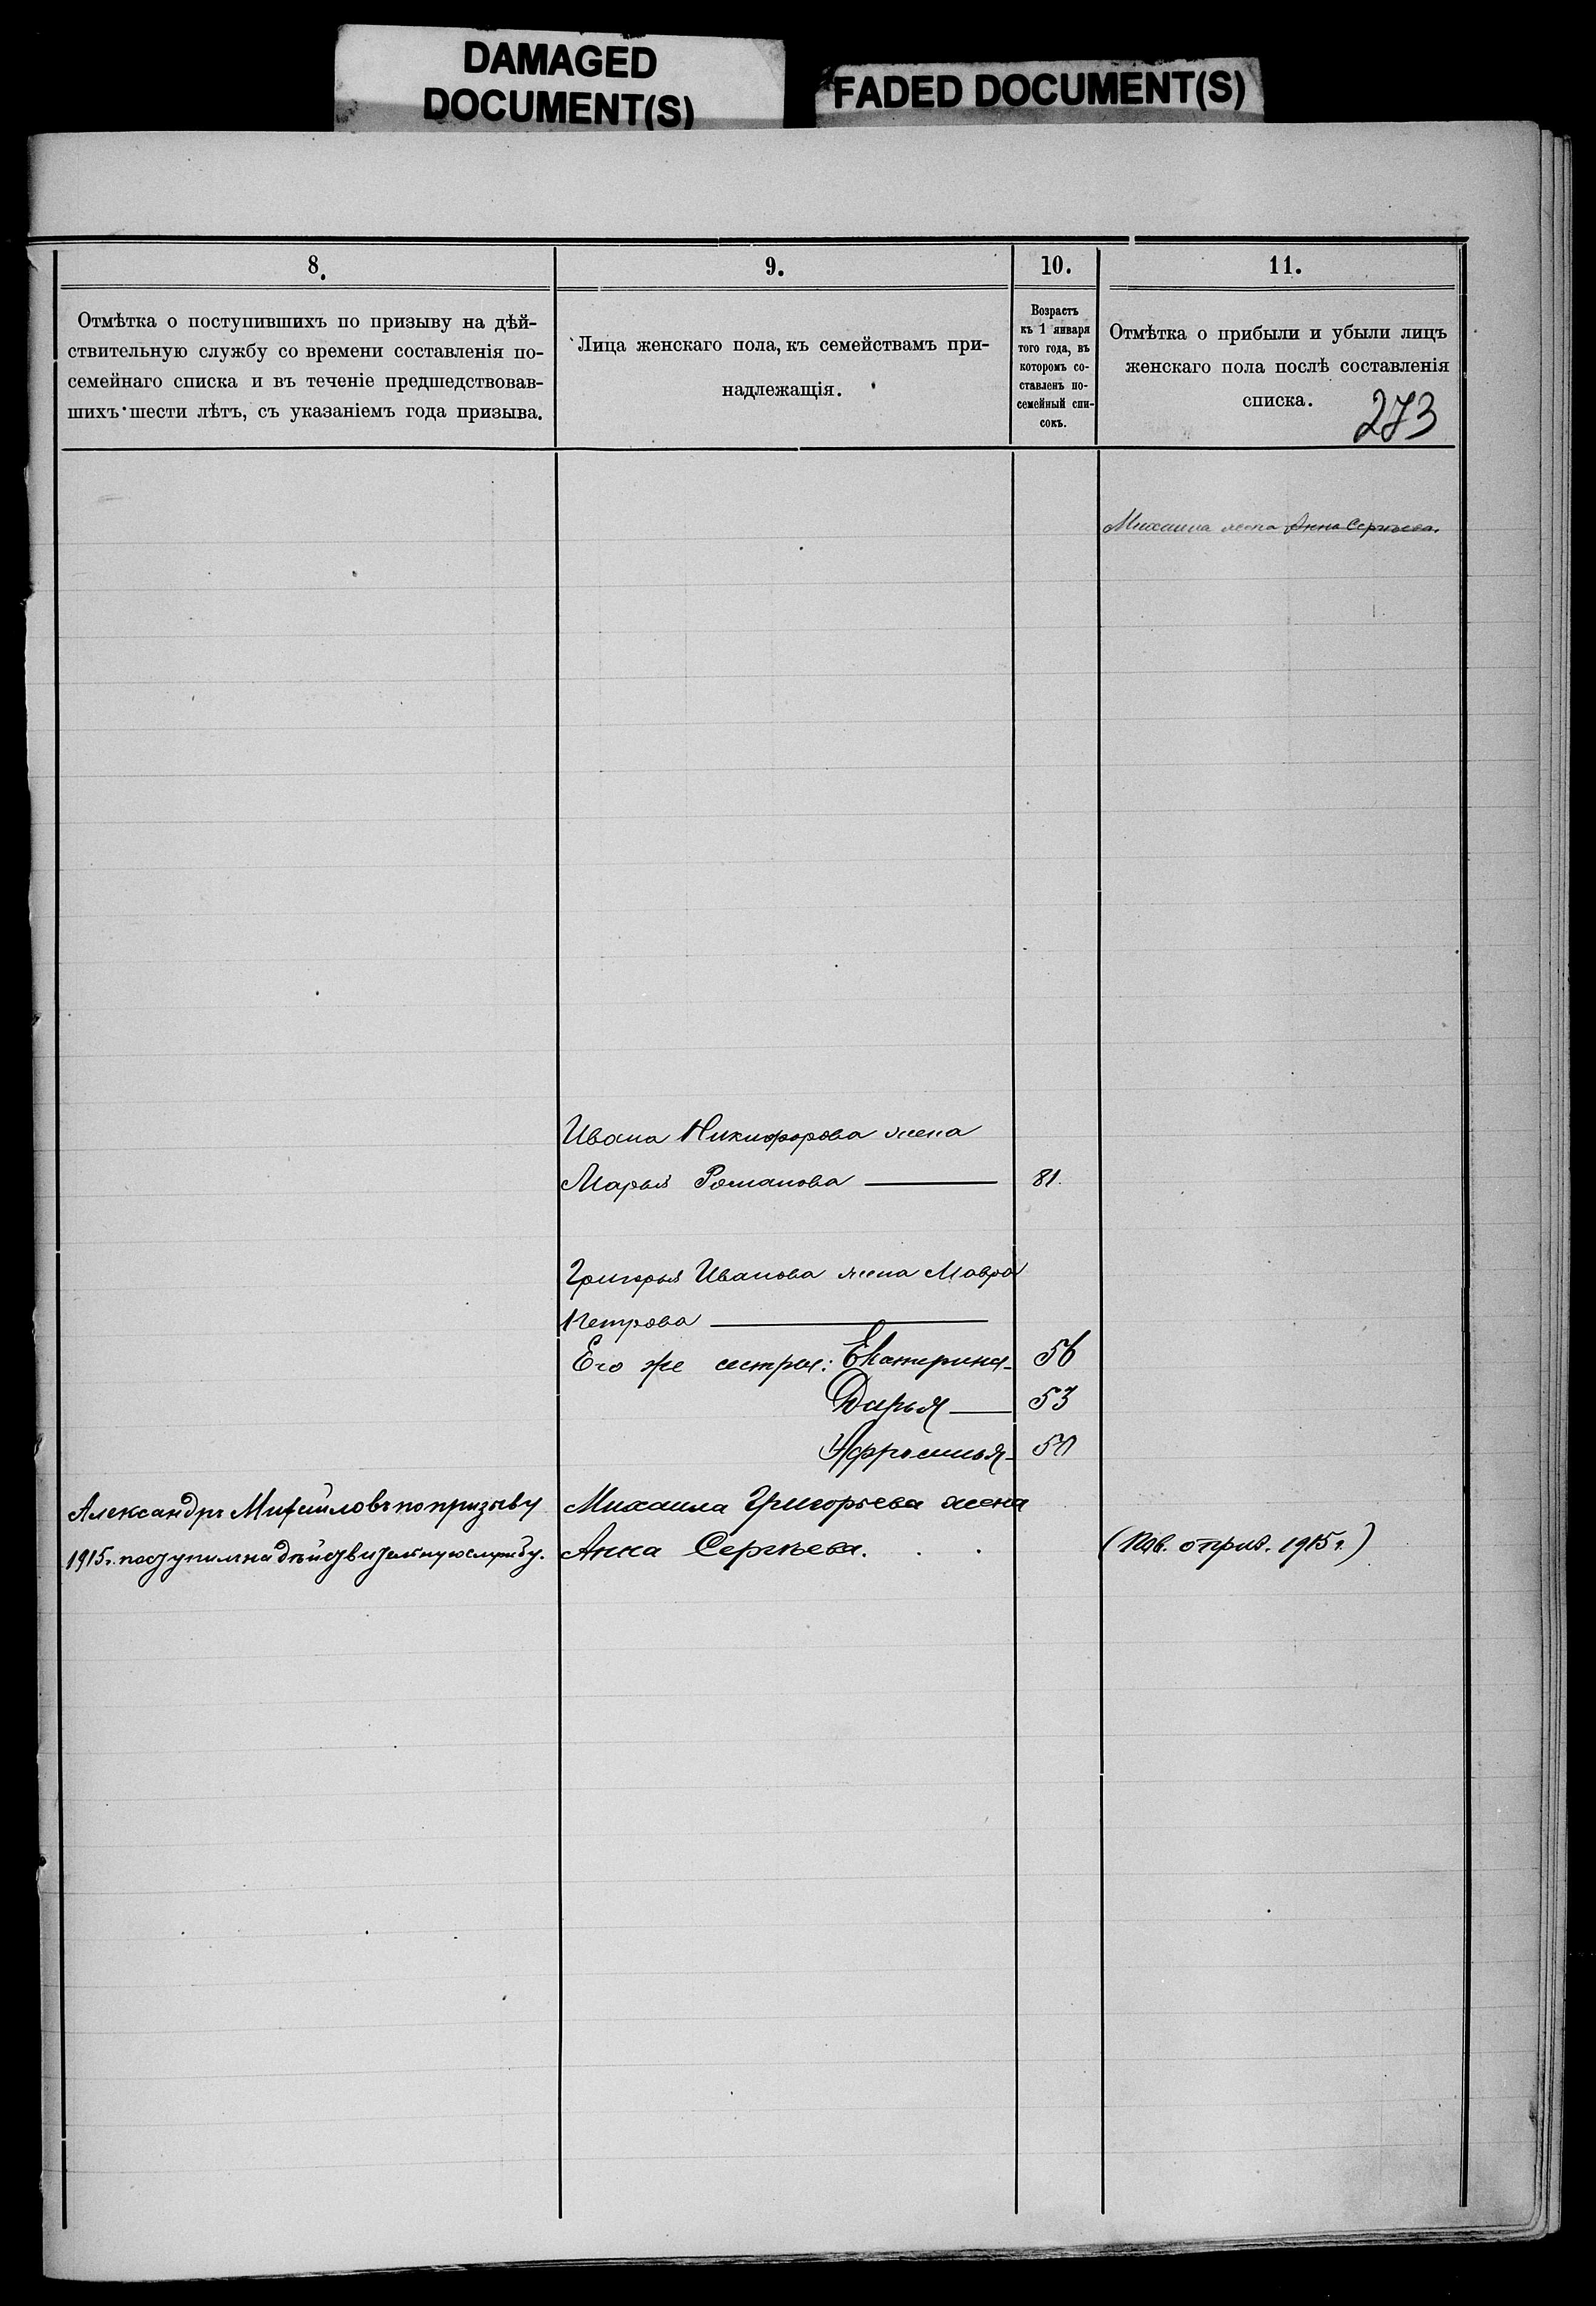 DAMAGED
DOCUMENT(S)
FADED DOCUMENT(S)
8.
Отмѣтка о поступившихъ по призыву на дѣй-
ствительную службу со времени составленія по-
семейнаго списка и въ теченіе предшедствовав-
шихъ шести лѣтъ, съ указаніемъ года призыва.
9.
Лица женскаго пола, къ семействамъ при-
надлежащія.
10.
Возрастъ
къ 1 января
того года, въ
которомъ со-
ставленъ по-
семейный спи-
сокъ.
11.
Отмѣтка о прибыли и убыли лицъ
женскаго пола послѣ составленія
списка.
273
Михаила жена Анна Сергѣева.
Ивана Никифорова жена
Марья Романова 81.
Григорья Иванова жена Мавра
Петрова
Его же сестры: Екатерина 56
Дарья 53
50
Александръ Михайловъ по призыву
1915г. поступилъ на дѣйствительную службу.
Михаила Григорьева жена
Анна Сергѣева.
1915 г.)